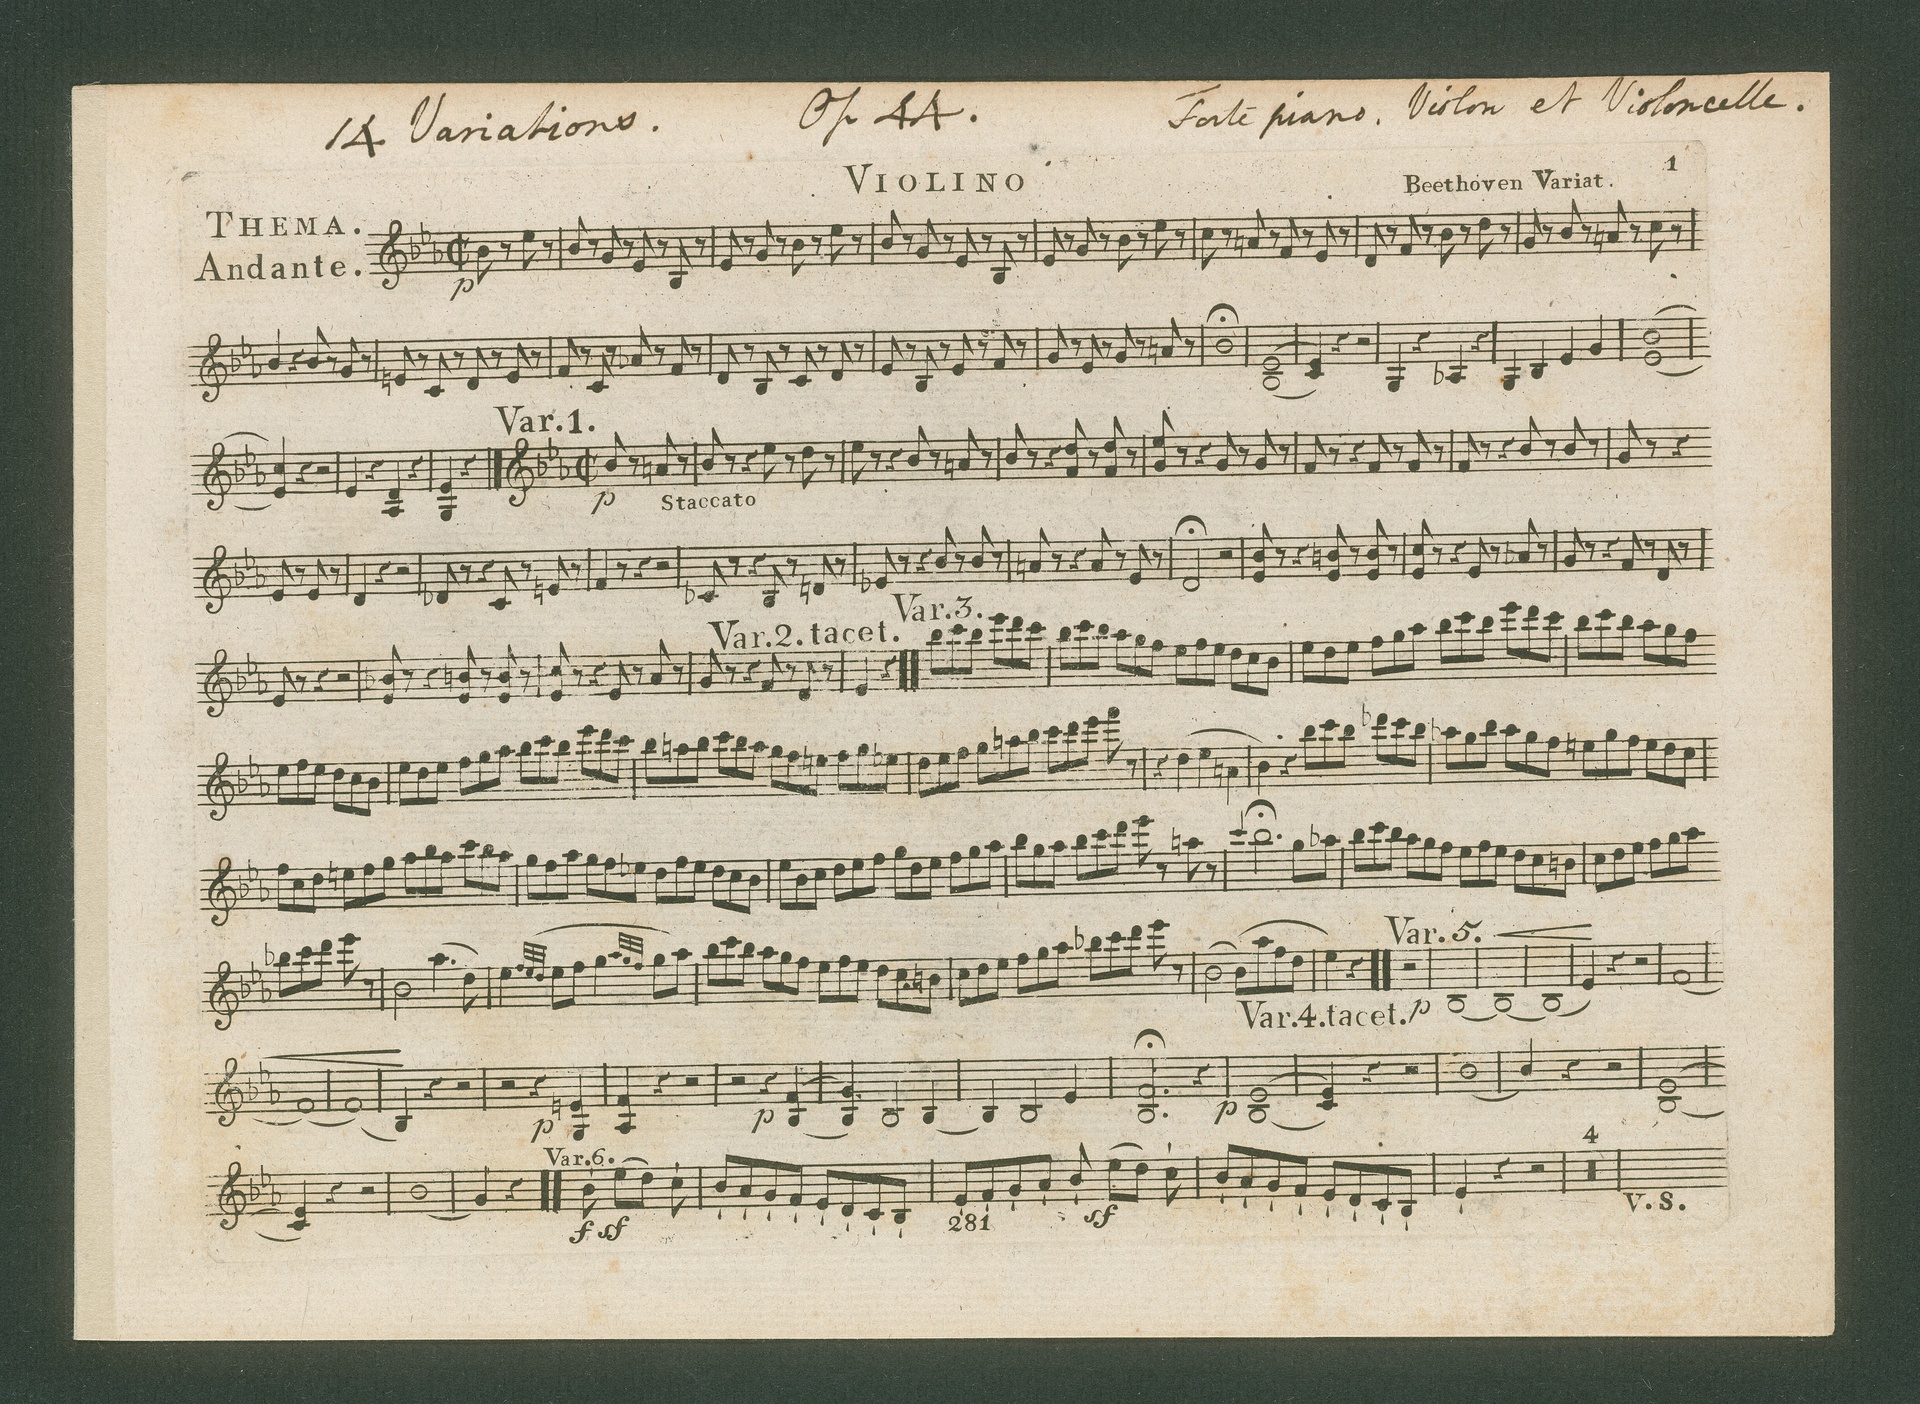 14 Variations. Op 44. Forte piano. Violon et Violoncelle.
1
VIOLINO
Beethoven Variat.
THEMA.
Andante.
p
Var.1.
p Staccato
Var.3.
Var.2. tacet.
Var. 5.
Var.4.tacet. p
p p p
4
Var.6.
V. S.
f sf 281 sf